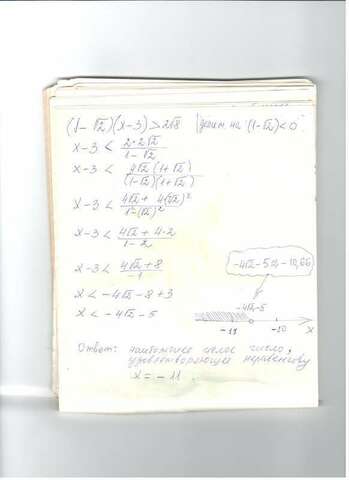 (1-√2)(x-3)>2√8 | делим на (1-√2)<0
x-3 < 2·2√2/(1-√2)
x-3 < 4√2(1+√2)/((1-√2)(1+√2))
x-3 < (4√2+4(√2)²)/(1-(√2)²)
x-3 < (4√2+4·2)/(1-2)
x-3 < (4√2+8)/(-1)
-4√2-5≈-10,66
x < -4√2-8+3
-4√2-5
x < -4√2-5
-11 -10 x
Ответ: наибольшее целое число,
удовлетворяющее неравенству
x=-11.